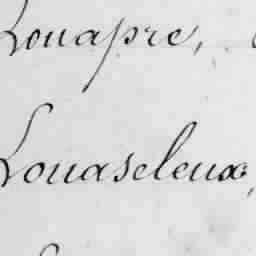 Louapre,
Louaseleux,